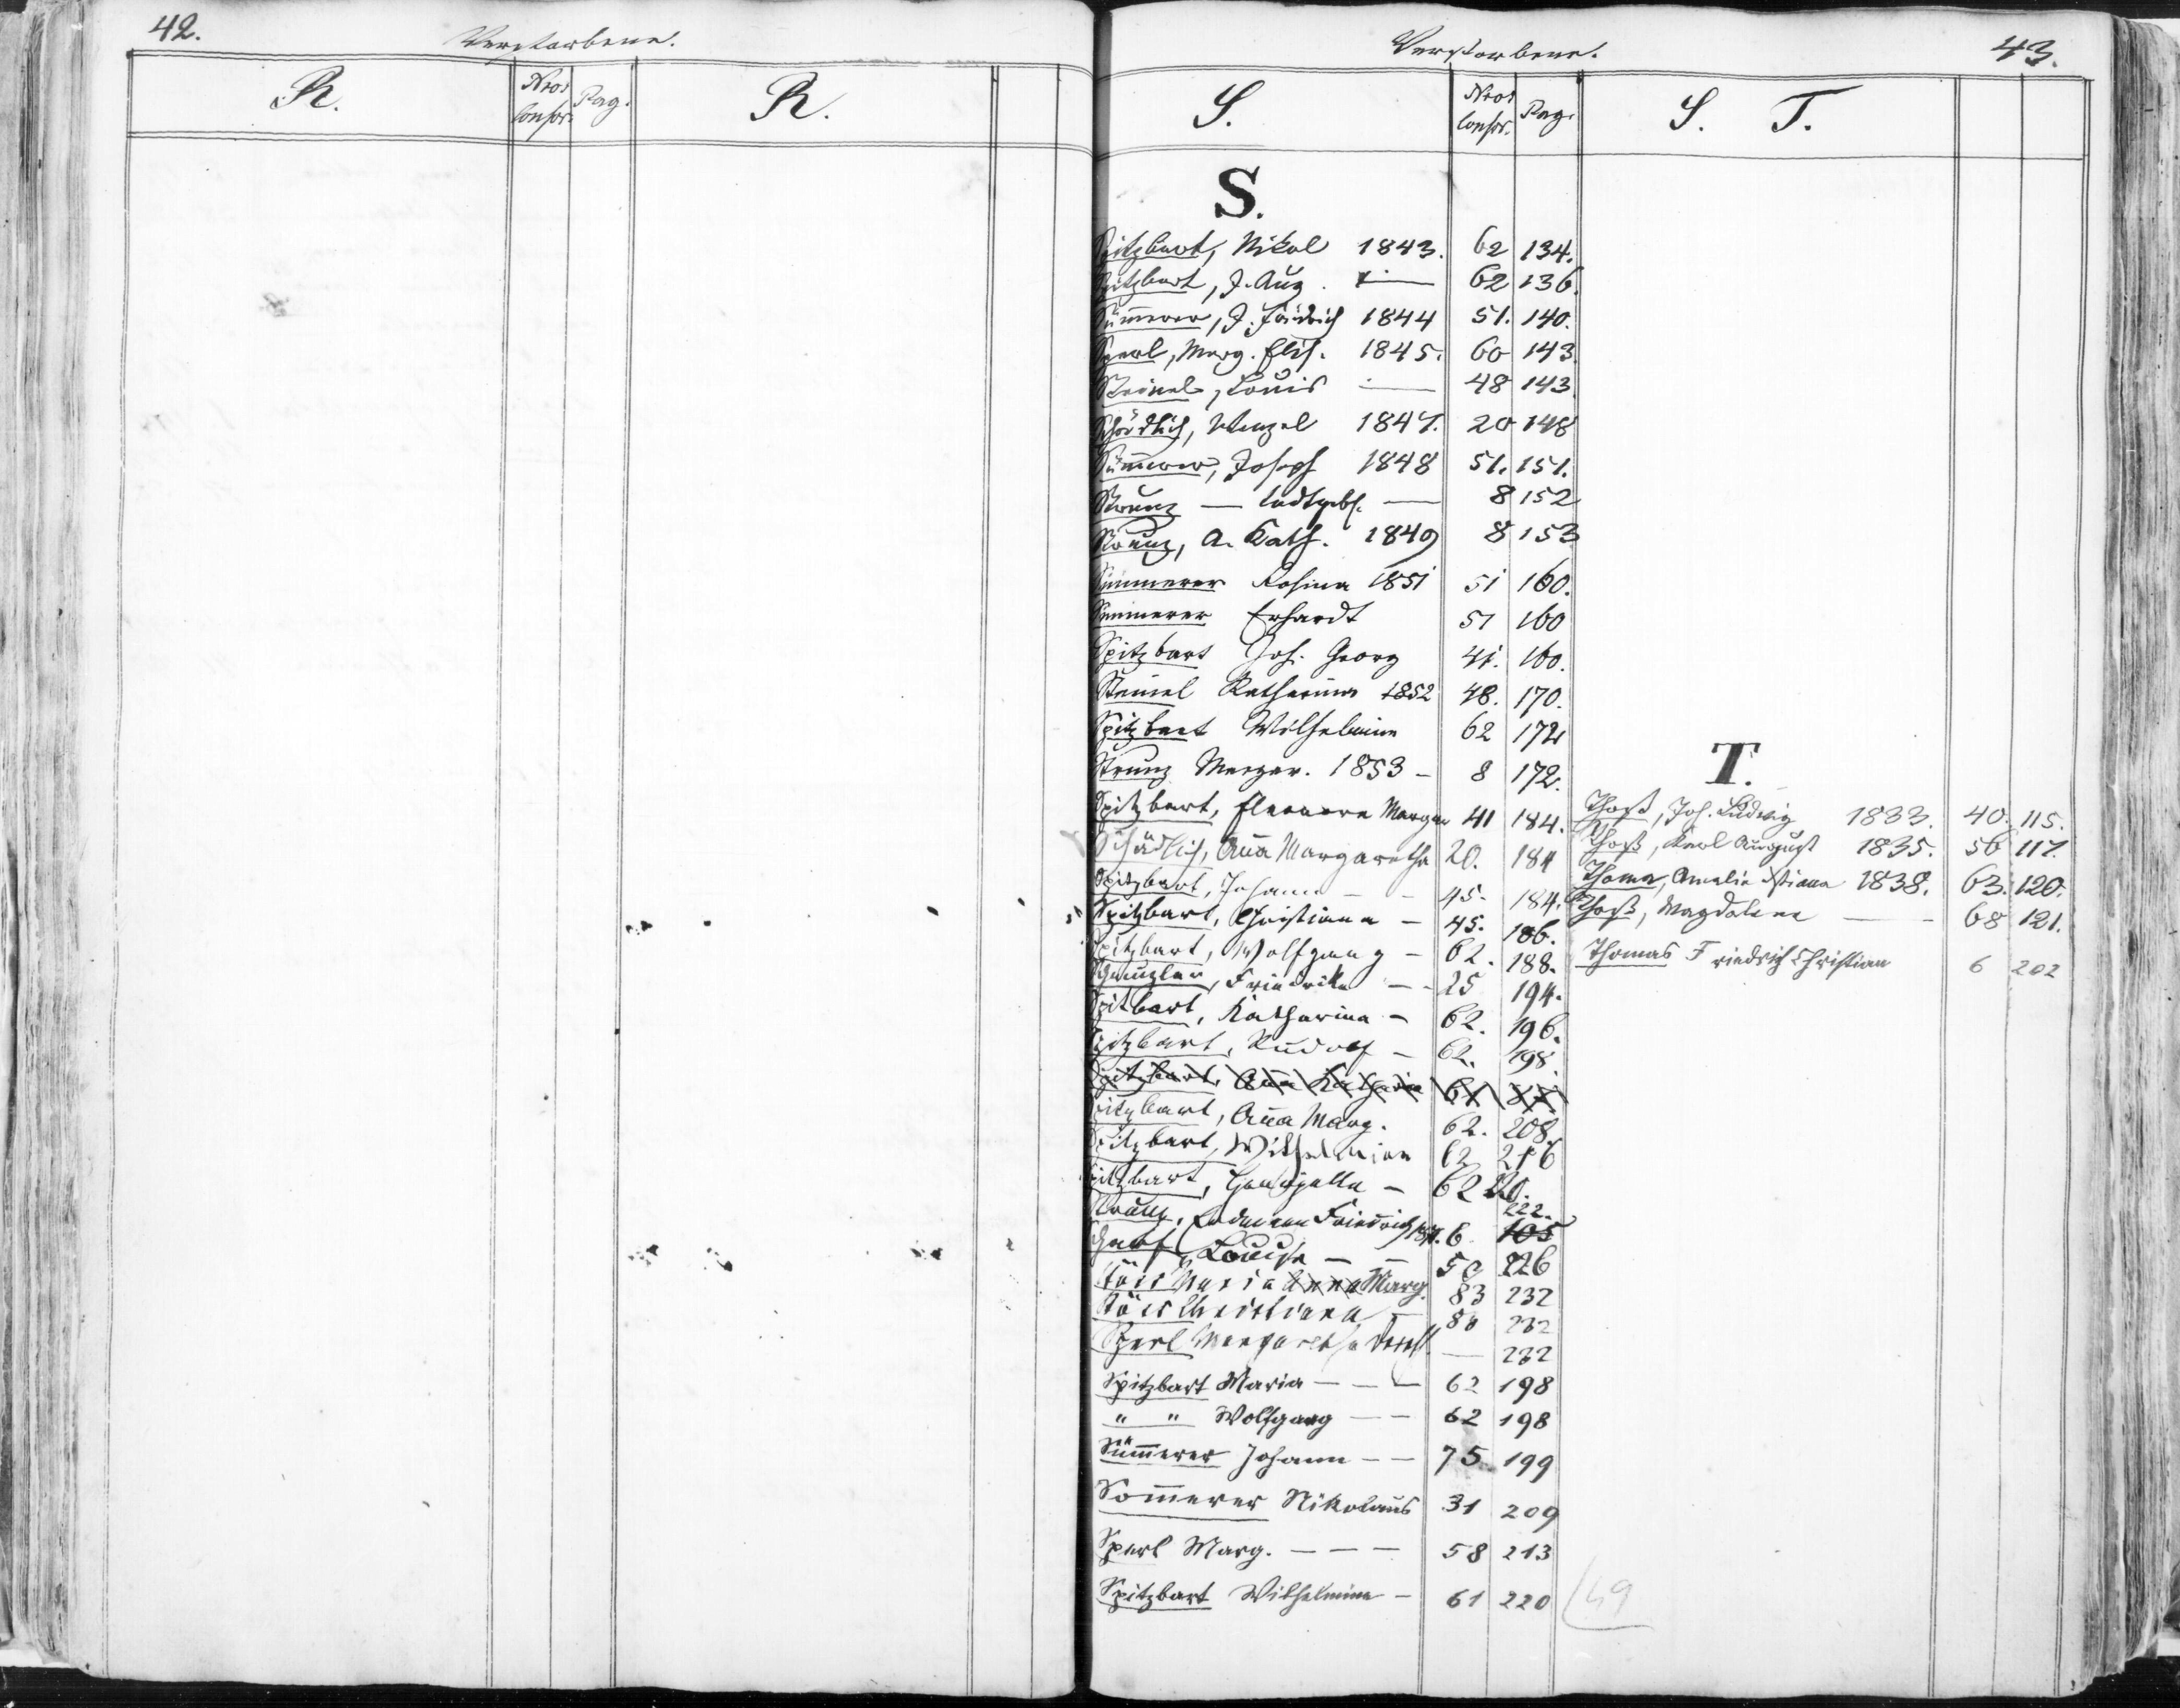 42.
Verstorbene.
R.
Nros Conscr.
Pag.
R.
Verstorbene.
43.
S.
Nros Conscr.
Pag.
S. T.
S.
Spitzbart, Nikol 1843. 62 134.
Spitzbart, J. Aug. — 62 136.
Sümerer, J. Friedrich 1844 51. 140.
Sperl, Marg. Elis. 1845. 60 143
Steinel, Louis — 48 143.
Schädlich, Wenzel 1847. 20 148
Sümerer, Joseph 1848 51. 151.
Strunz — todtgeb. — 8 152
Strunz, A. Kath. 1849 8 153
Sümmerer Rosina 1851 51 160.
Sümmerer Erhardt 51 160
Spitzbart Joh. Georg 41. 160.
Steinel Katharina 1852 48. 170.
Spitzbart Wilhelmine 62 172
Strunz Margar. 1853 - 8 172.
Spitzbart, Eleonora Margar 41 184.
Schädlich, Aña Margaretha 20. 184
Spitzbart, Johann - - 45. 184.
Spitzbart, Christiana - 45. 186.
Spitzbart, Wolfgang - 62. 188.
Friedrike - - 25 194.
Spitbart, Katharina - 62. 196.
Spitzbart, Rudolf - 62. 198.
Spitzbart, Aña Katharina
Spitzbart, Aña Marg. 62. 208.
Spitzbart, Wilhelmine 62 216
Spitzbart, - 62 220.
Friedrich 6. 222. 105
Louise - - 50 226
Maria Anna Marg. 83 232
Christiana - 80 232
Sperl Margaretha — 232
Spitzbart Maria - - - 62 198
" " Wolfgang - - 62 198
Sümerer Johann - - 75. 199
Somerer Nikolaus 31 209
Sperl Marg. - - - 58 213
Spitzbart Wilhelmine - 61 220
T.
Thoß, Joh. Ludwig 1833. 40. 115.
Thoß, Karl August 1835. 56 117.
Thoma, Amalie Xstiana 1838. 63. 120.
Thoß, Magdalena — - 68 121.
Thomas Friedrich Christian 6 202
49